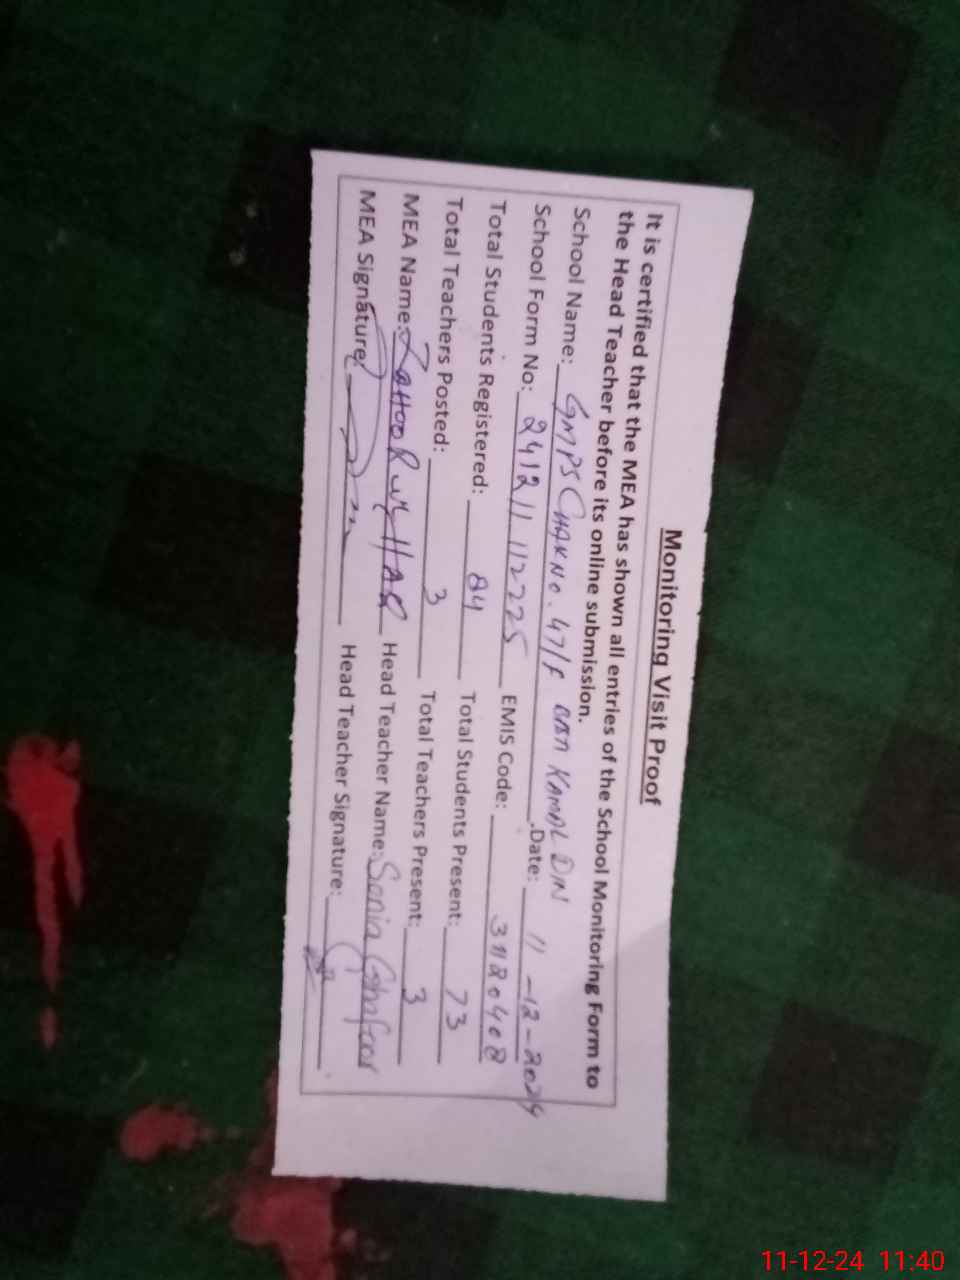 Monitoring Visit Proof
It is certified that the MEA has shown all entries of the School Monitoring Form to
the Head Teacher before its online submission.
School Name: GMPS CHAK NO. 47/F KAMAL DIN Date: 11-12-2024
School Form No: 241211112225 EMIS Code: 31120408
Total Students Registered: 84 Total Students Present: 73
Total Teachers Posted: 3 Total Teachers Present: 3
MEA Name: Head Teacher Name: Sonia Ghafoor
MEA Signature: Head Teacher Signature:
11-12-24 11:40